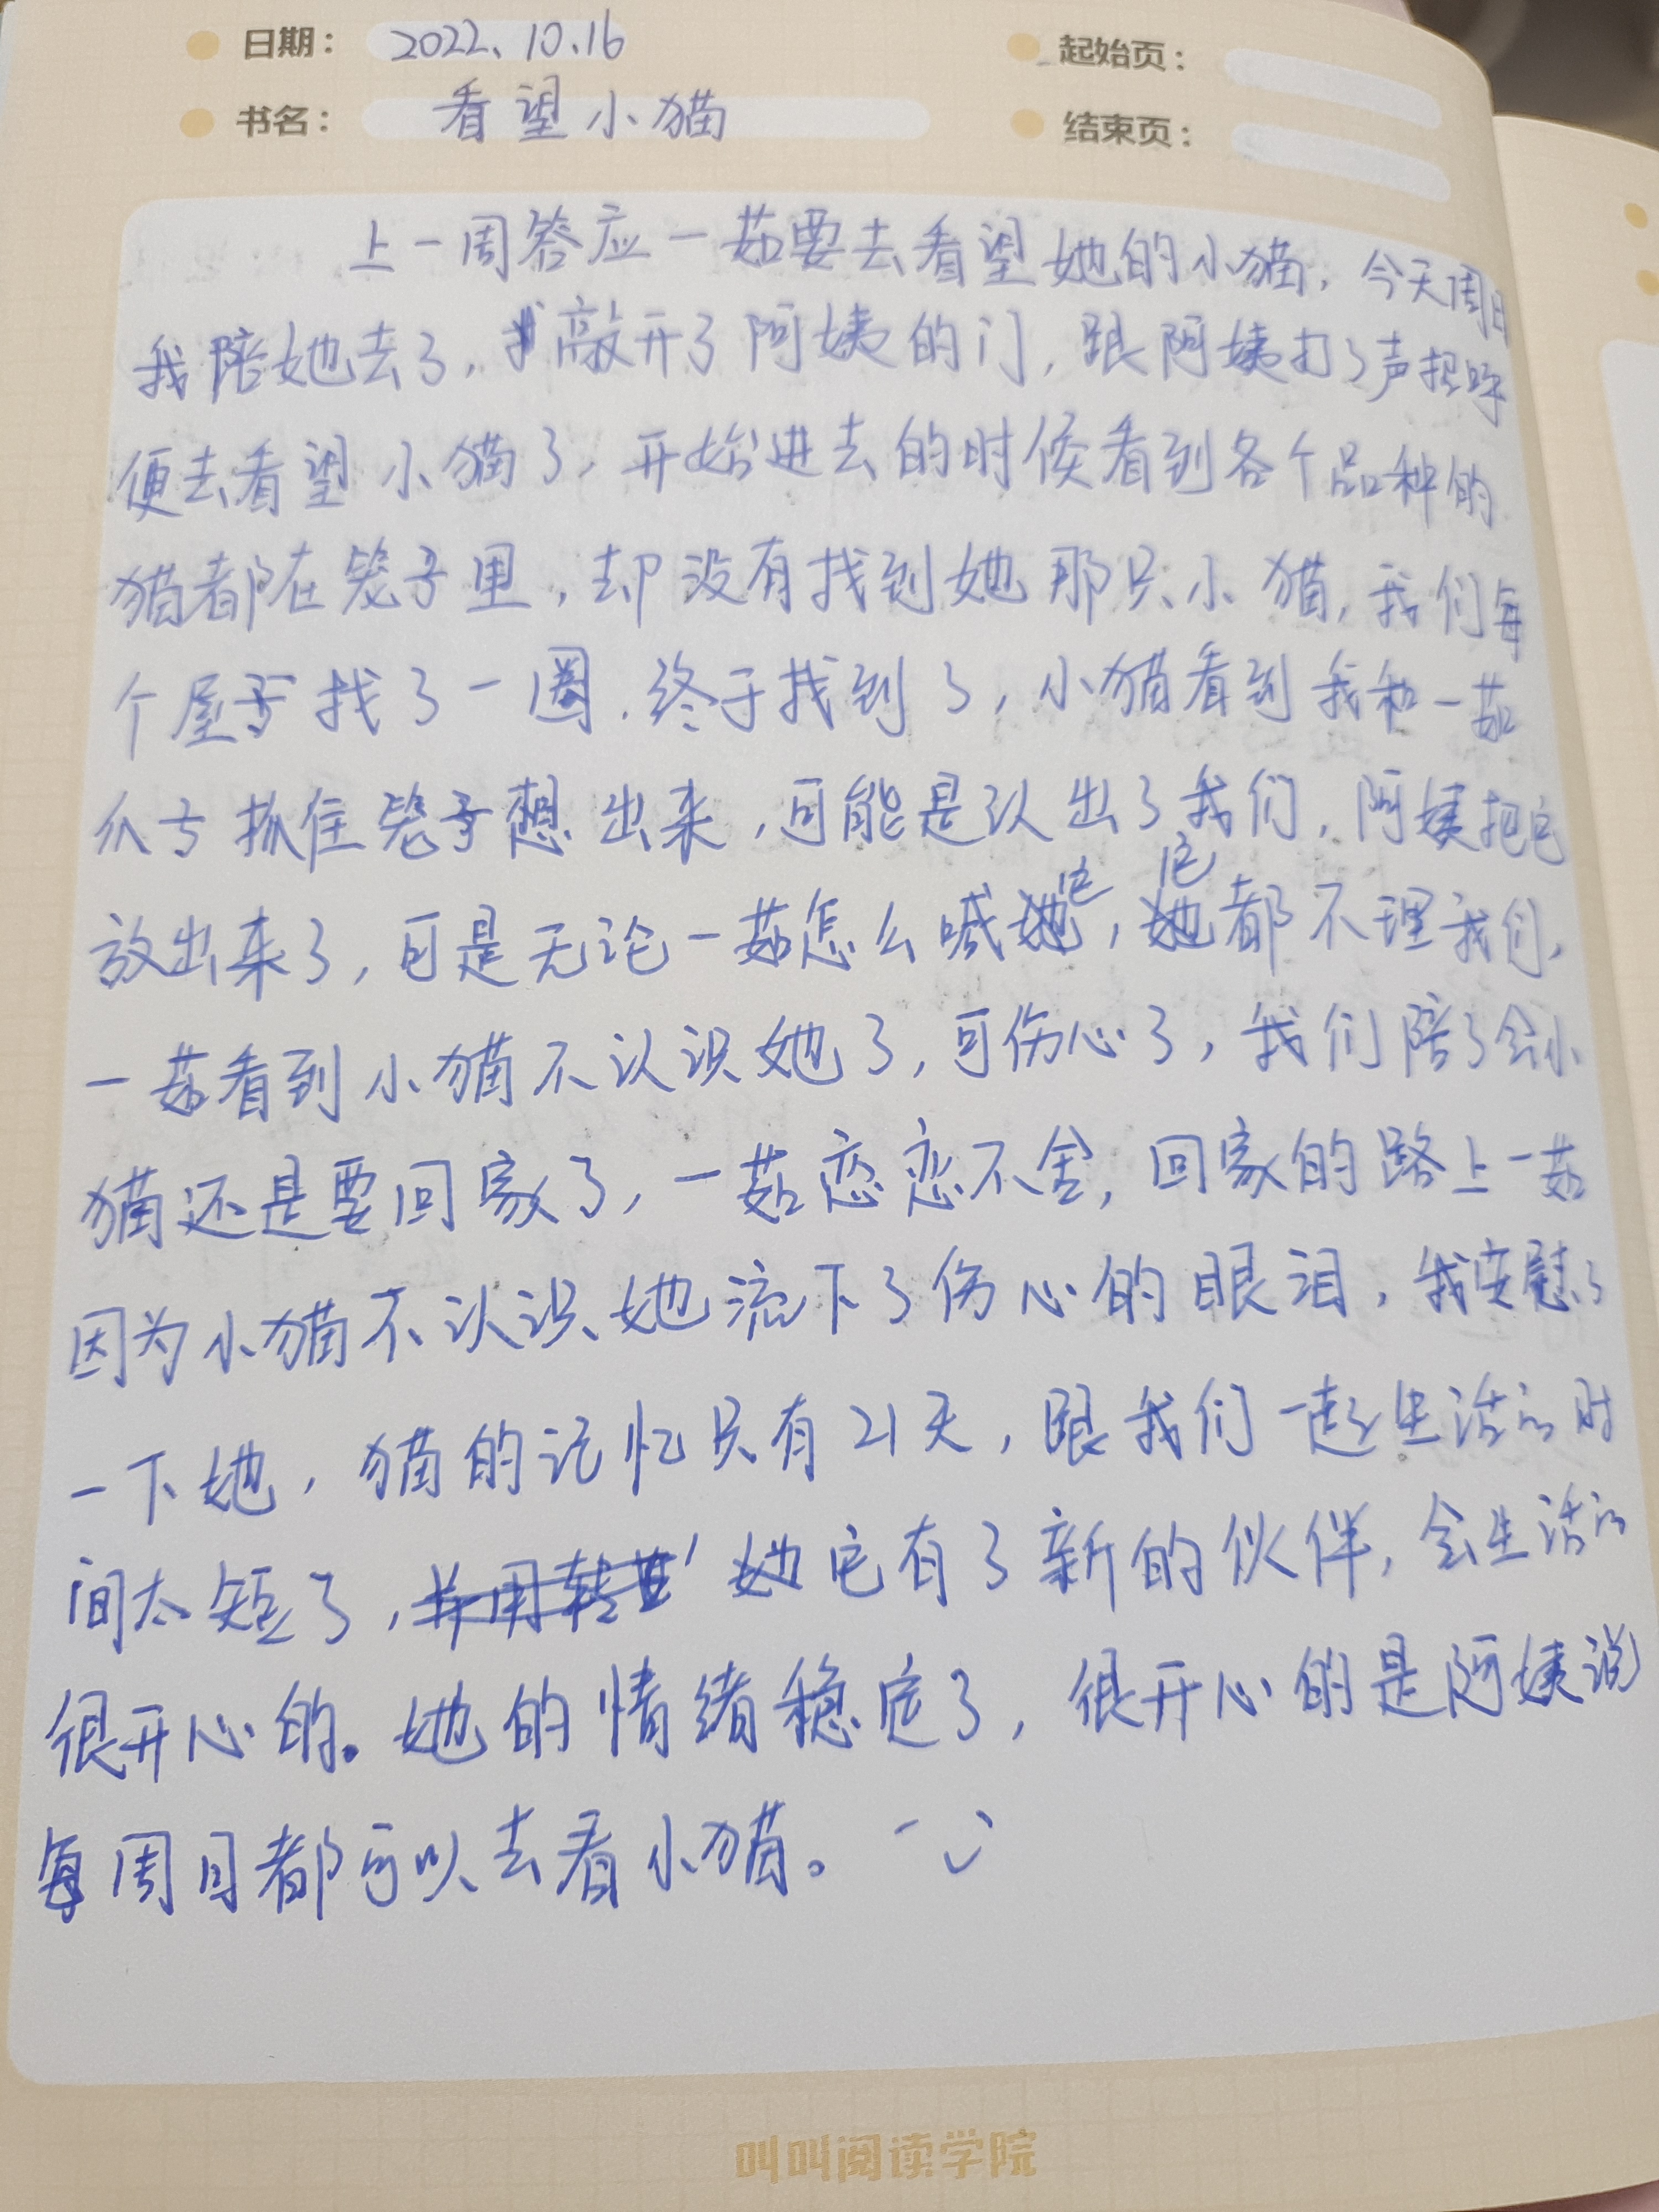 日期： 2022.10.16
起始页：
书名： 看望小猫
结束页：
上一周答应一茹要去看望她的小猫，今天周日
我陪她去了，敲开了阿姨的门，跟阿姨打了声招呼
便去看望小猫了，开始进去的时候看到各个品种的
猫都在笼子里，却没有找到她那只小猫，我们每
个屋子找了一圈，终于找到了，小猫看到我和一茹
爪子抓住笼子想出来，可能是认出了我们，阿姨把它
放出来了，可是无论一茹怎么喊它，它都不理我们，
一茹看到小猫不认识她了，可伤心了，我们陪了会小
猫还是要回家了，一茹恋恋不舍，回家的路上一茹
因为小猫不认识她流下了伤心的眼泪，我安慰了
一下她，猫的记忆只有21天，跟我们一起生活的时
间太短了，她它有了新的伙伴，会生活的
很开心的。她的情绪稳定了，很开心的是阿姨说
每周日都可以去看小猫。
叫叫阅读学院